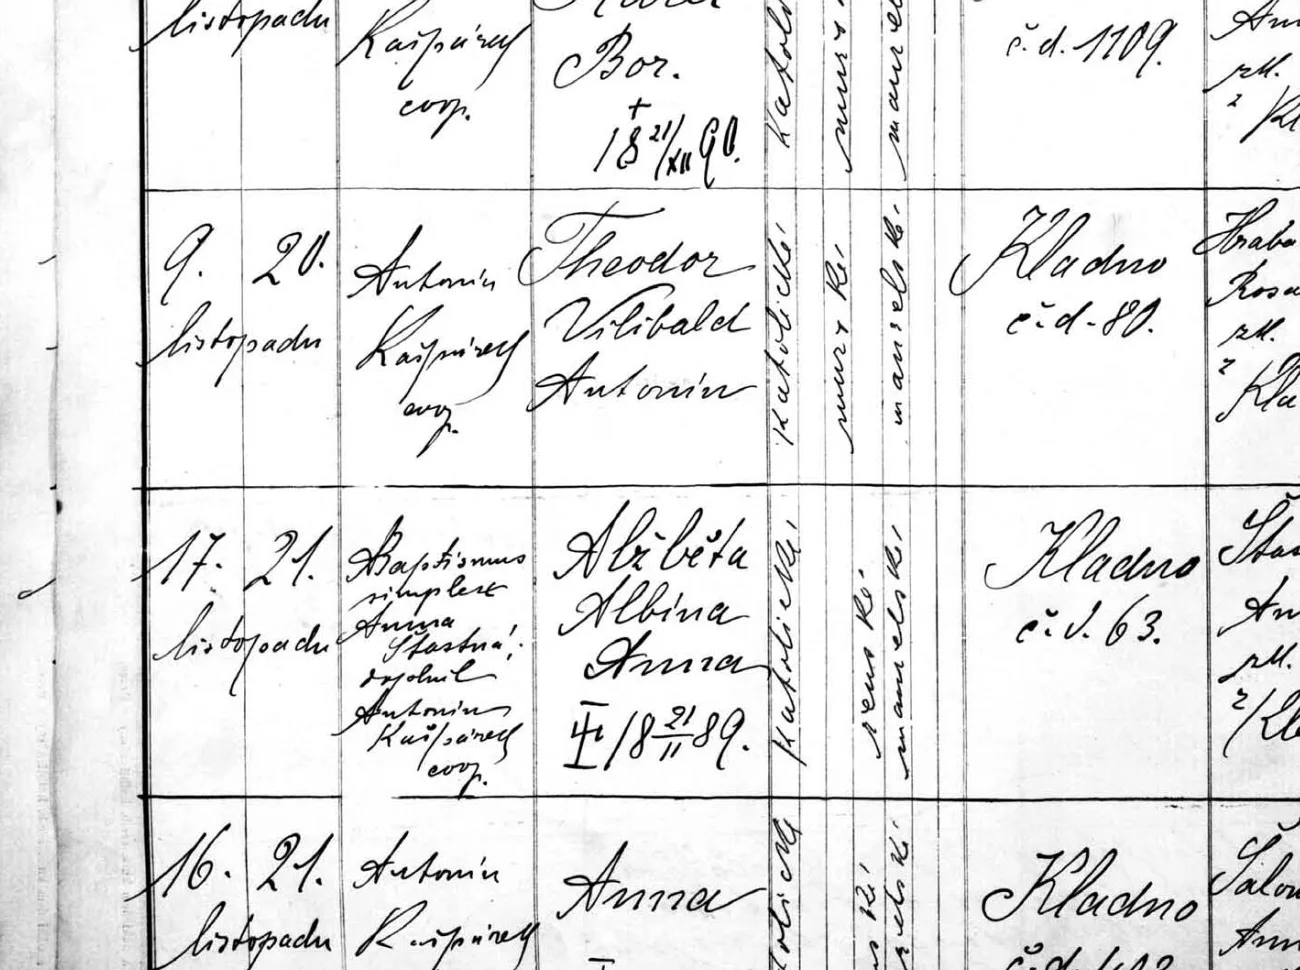 listopadu
Kašpárek
coop.
Bor.
+
18 21/XII 90.
č.d. 1109.
zkl.
z Kl
9. 20.
listopadu
Antonín
Kašpárek
coop.
Theodor
Vilibald
Antonín
katolické
mužské
manželské
Kladno
č.d. 80.
Hrabá
Rosa
zkl.
z
Kla
17. 21.
listopadu
Baptismus
simplex
Anna
Šťastná;
doplnil
Antonín
Kašpárek
coop.
Alžběta
Albina
Anna
18 21/II 89.
katolické
ženské
manželské
Kladno
č.d. 63.
Šťas
An
zkl.
z
16. 21.
listopadu
Antonín
Kašpárek
Anna
Kladno
Šalou
Ann